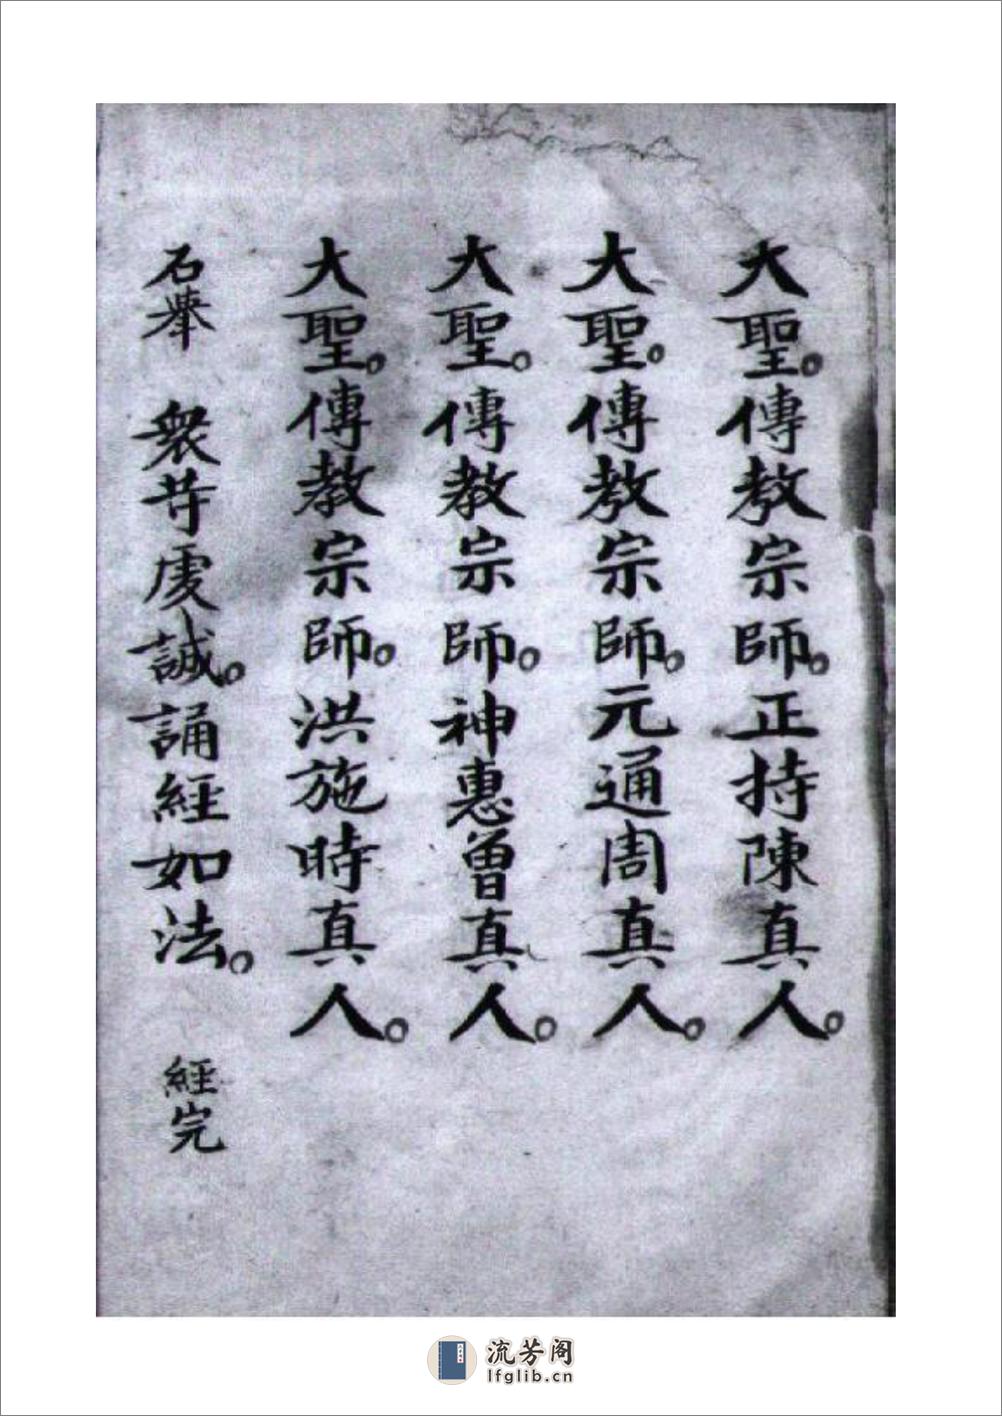 大聖。傳教宗師。正持陳真人。
大聖。傳教宗師。元通周真人。
大聖。傳教宗師。神惠曾真人。
大聖。傳教宗師。洪施時真人。
石舉　衆䓁虔誠。誦經如法。　經完
流芳阁
lfglib.cn